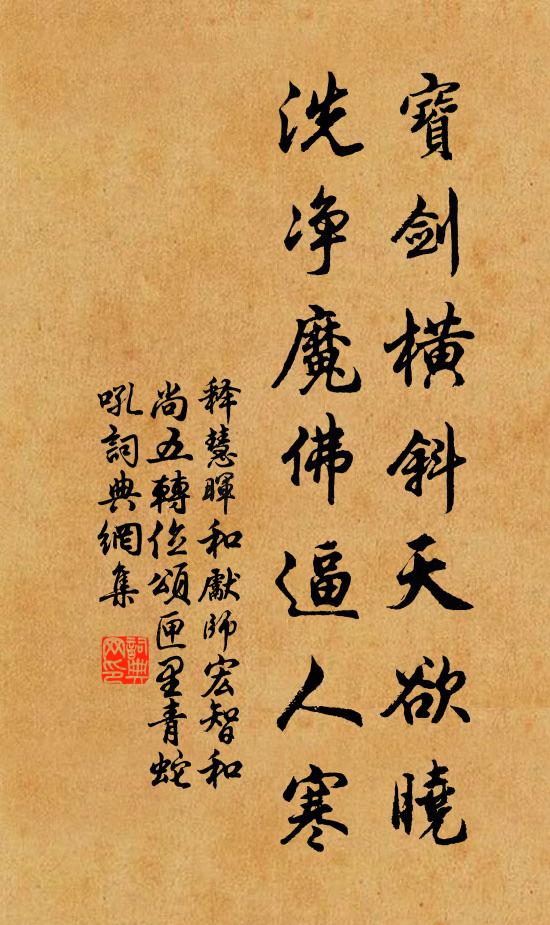 寶劍橫斜天欲曉
洗净魔佛逼人寒
释慧暉和獻師宏智和
尚五轉位頌匣里青蛇
吼詞典網集
詞典
网印